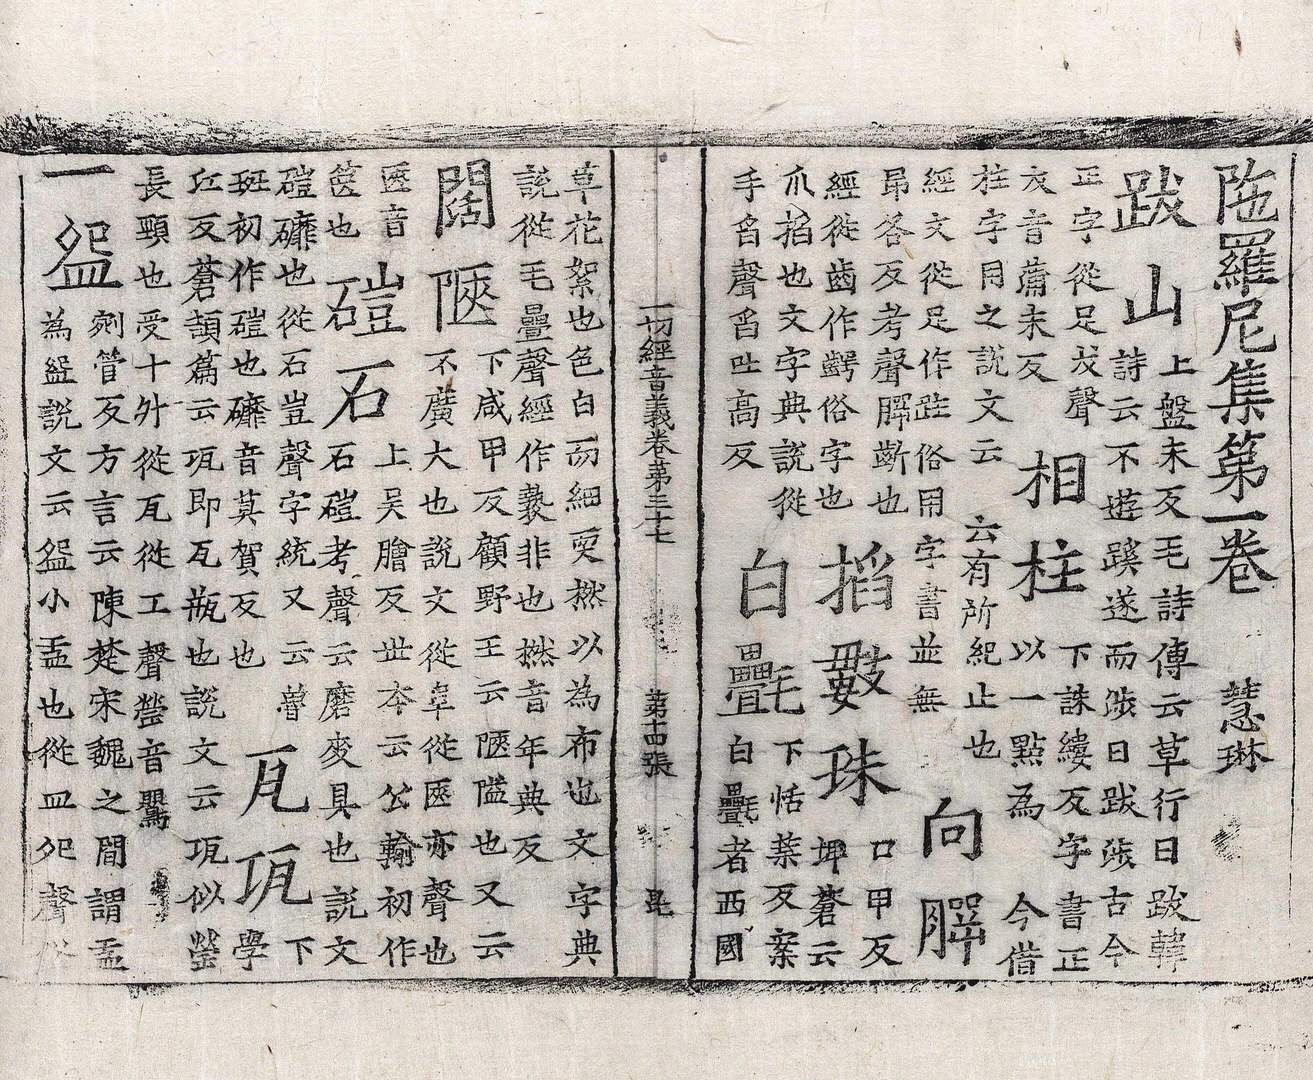 陁羅尼集第一卷 慧琳
跋山 上盤末反毛詩傳云草行曰跋韓
詩云不遊蹊遂而涉曰跋涉古今
正字從足犮聲
犮音蒲末反 相柱 下誅縷反字書正
以一點為今借
柱字用之說文云云有所紀止也
經文從足作跓俗用字書並無 向腭
昂各反考聲腭斷也
經從齒作齶俗字也 搯數珠 口甲反
坤蒼云
爪搯也文字典說從
手舀聲舀吐高反 白㲲 下恬葉反案
白㲲者西國
一切經音義卷第三十七 第十四張 毘
草花絮也色白而細耎撚以為布也文字典
說從毛疊聲經作褺非也撚音年典反
闊陿 下咸甲反顧野王云陿隘也又云
不廣大也說文從阜從匧亦聲也
匧音
篋也 磑石 上吳膾反世本云公輸初作
石磑考聲云磨麥具也說文
磑䃺也從石豈聲字統又云魯
班初作磑也䃺音莫賀反也 瓦瓨 下
學
江反蒼頡篇云瓨即瓦瓶也說文云瓨似罃
長頸也受十升從瓦從工聲罃音鸎
一盌 剜管反方言云陳楚宋魏之間謂盂
為盌說文云盌小盂也從皿夗聲